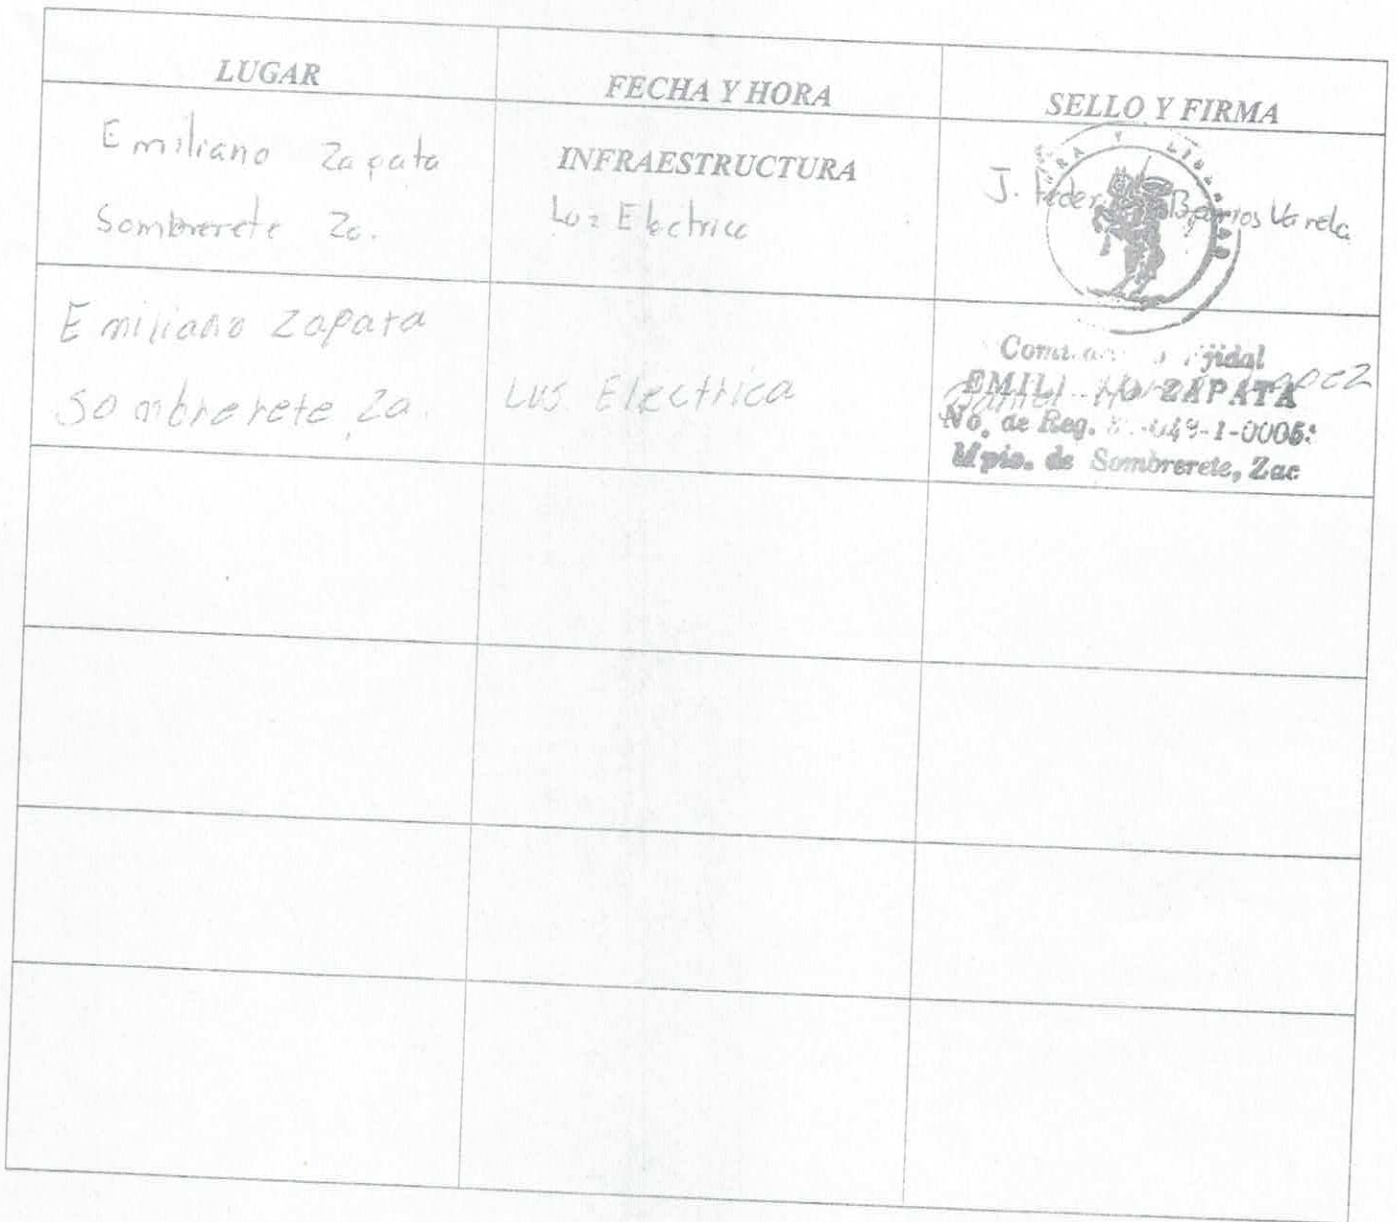 LUGAR
FECHA Y HORA
SELLO Y FIRMA
Emiliano Zapata
Sombrerete Za.
INFRAESTRUCTURA
Luz Electrica
J. Barrios Varela
Emiliano Zapata
Sombrerete Za.
Lus Electrica
EMILI NO ZAPATA
No. de Reg.
Mpio. de Sombrerete, Zac